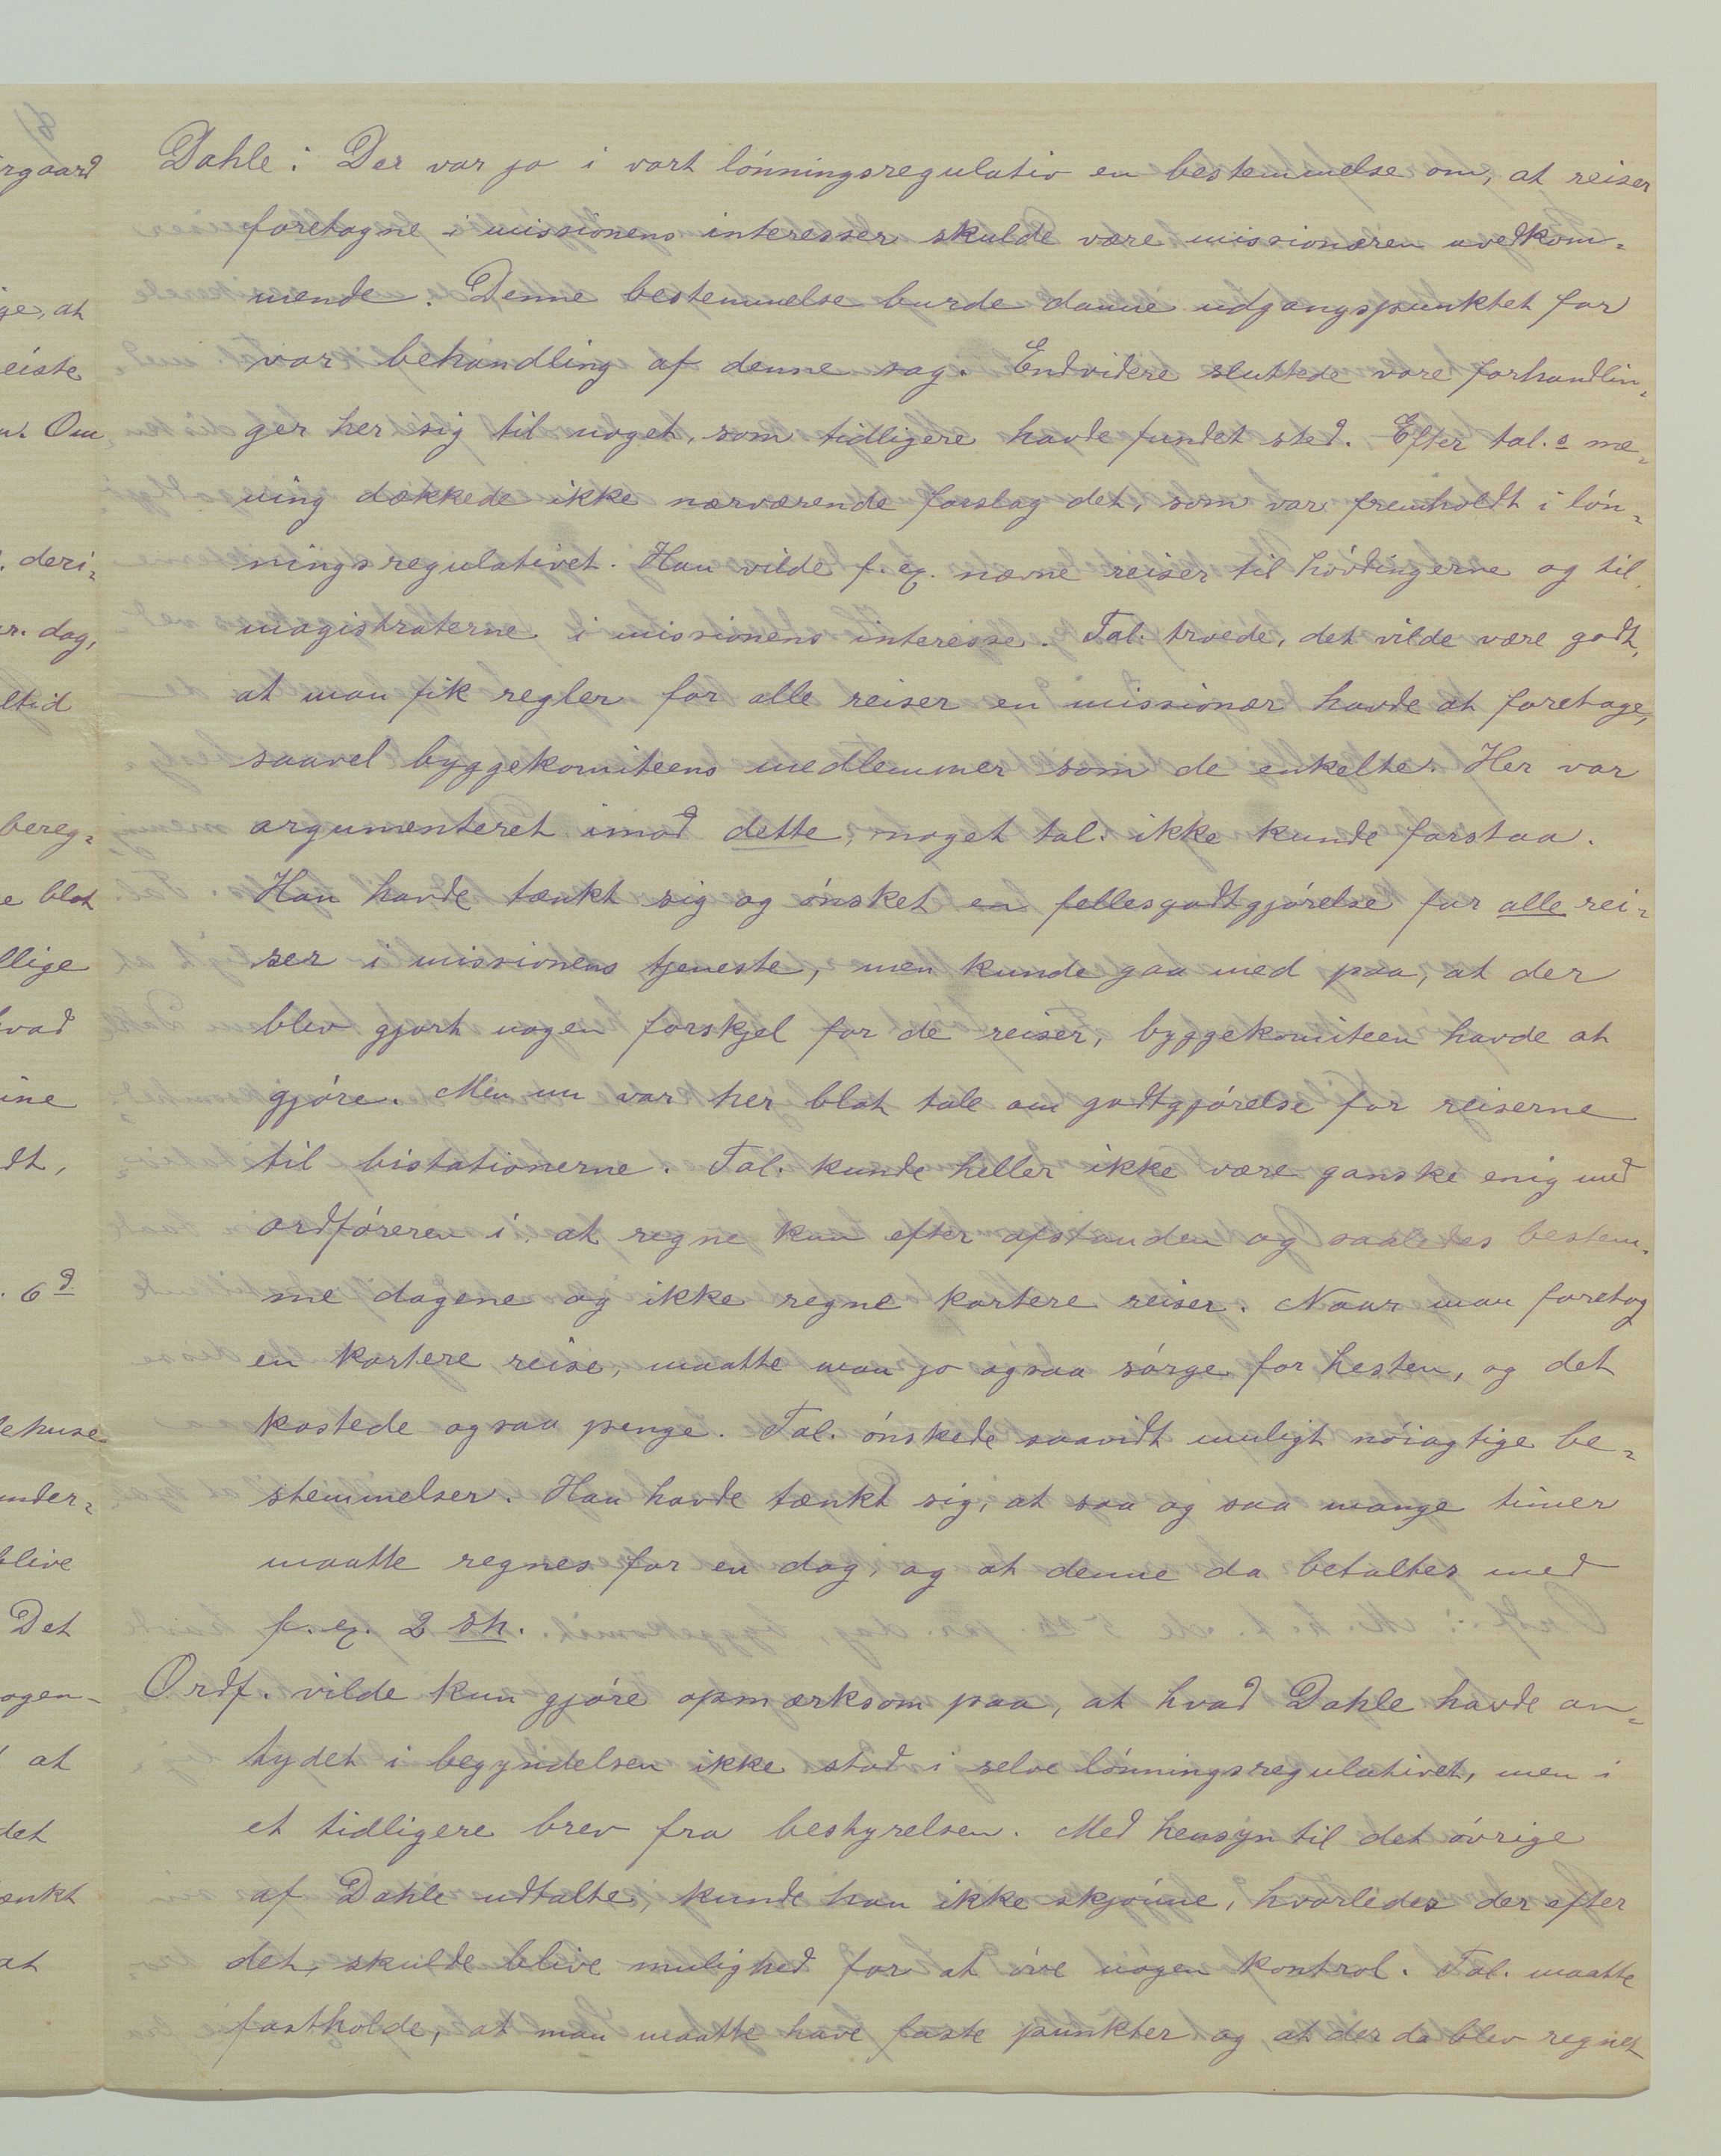 Dahle: Der var jo i vort lönningsregulativ en bestemmelse om, at reiser
foretagne i missionens interesser skulde være missionæren uvedkom-
mende. Denne bestemmelse burde danne udgangspunktet for
vor behandling af denne sag. Endvidere sluttede vore forhandlin-
ger her sig til noget, som tidligere havde fundet sted. Efter tal.s me-
ning dækkede ikke nærværende forslag det, som var fremholdt i lön-
ningsregulativet. Han vilde f. ex. nævne reiser til hövdingerne og til
magistraterne i missionens interesse. Tal. troede, det vilde være godt,
at man fik regler for alle reiser en missionær havde at foretage,
saavel byggekomiteens medlemmer som de enkelte. Her var
argumenteret imod dette, noget tal. ikke kunde forstaa.
Han havde tænkt sig og önsket en fellesgodtgjörelse for alle rei-
ser i missionens tjeneste, men kunde gaa med paa, at der
blev gjort nogen forskjel for de reiser, byggekomiteen havde at
gjöre. Men nu var her blot tale om godtgjörelse for reiserne
til bistationerne. Tal. kunde heller ikke være ganske enig med
ordföreren i, at regne kun efter afstanden og saaledes bestem-
me dagene og ikke regne kortere reiser. Naar man foretog
en kortere reise, maatte man jo ogsaa sörge for hesten, og det
kostede ogsaa penge. Tal. önskede saavidt muligt nöiagtige be-
stemmelser. Han havde tænkt sig, at saa og saa mange timer
maatte regnes for en dag, og at denne da betaltes med
f. ex. 2 sh.
Ordf. vilde kun gjöre opmærksom paa, at hvad Dahle havde an-
tydet i begyndelsen ikke stod i selve lönningsregulativet, men i
et tidligere brev fra bestyrelsen. Med hensyn til det övrige
af Dahle udtalte, kunde han ikke skjönne, hvorledes der efter
det, skulde blive mulighed for at öve nogen kontrol. Tal. maatte
fastholde, at man maatte have faste punkter og at der da blev regnet